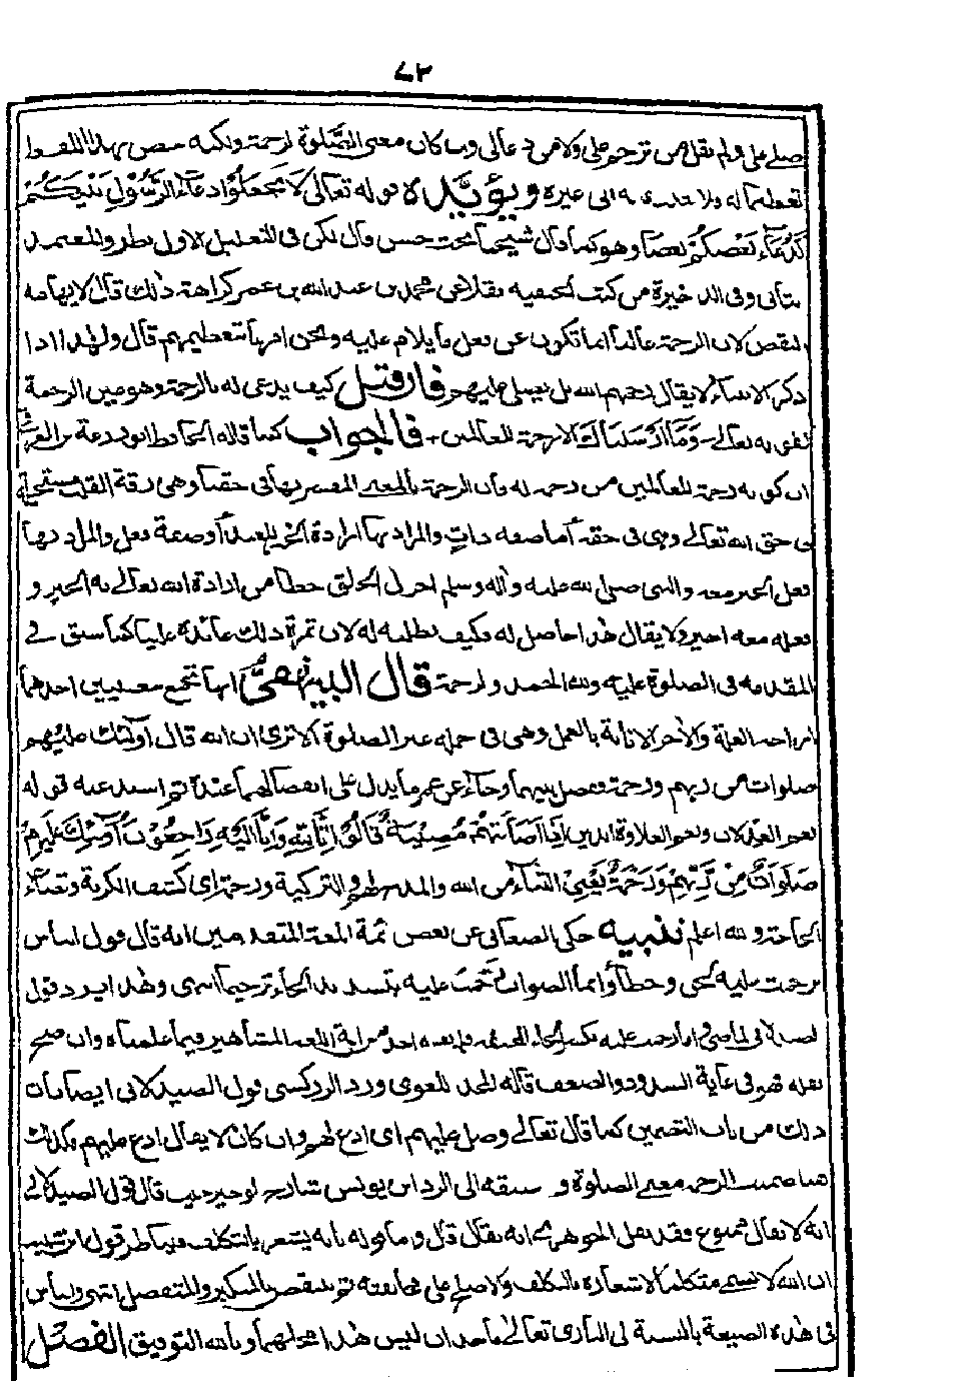 ٧٣
صلى علي ولم يقل من ترحم علي ولا من دعا لي وان كان معنى الصلوة الرحمة ولكنه خص بهذا اللفظ
تعظيما له ولا يتعدى به الى غيره ويؤيده قوله تعالى لا تجعلوا دعاء الرسول بينكم
كدعاء بعضكم بعضا وهو كما قال شيخنا بحث حسن قال لكن في التعليل الاول نظر والمعتمد
الثاني وفي الذخيرة من كتب الحنفية نقلا عن محمد بن عبد الله بن عمر كراهة ذلك قال لايهامه
النقص لان الرحمة غالبا انما تكون عن فعل ما يلام عليه ونحن امرنا بتعظيمهم قال ولهذا اذا
ذكر الانبياء لا يقال رحمهم الله بل يصلى عليهم فان قيل كيف يدعى له بالرحمة وهو عين الرحمة
لقوله تعالى وما ارسلناك الا رحمة للعالمين فالجواب كما قاله الحافظ ابو زرعة بن العراقي
ان كونه رحمة للعالمين من رحمة له فان الرحمة بالمعنى المفسر بها في حقنا وهي رقة القلب مستحيلة
في حق الله تعالى وهي في حقه اما صفة ذات والمراد بها ارادة الخير للعبد أو صفة فعل والمراد بها
فعل الخير معه والنبي صلى الله عليه وآله وسلم اجزل الخلق حظا من ارادة الله تعالى به الخير و
فعله معه الخير ولا يقال هذا حاصل له فكيف نطلبه له لان ثمرة ذلك عائدة علينا كما سبق في
المقدمة في الصلوة عليه ولله الحمد والرحمة قال البيهقي انها تجمع معنيين احدهما
ازاحة العلة والآخر الاثابة بالعمل وهي في جملة غير الصلوة الا ترى ان الله قال أولئك عليهم
صلوات من ربهم ورحمة ففصل بينهما وجاء عن عمر ما يدل على انفصالهما عنده ثم اسند عنه قوله
نعم العدلان ونعم العلاوة الذين اذا أصابتهم مصيبة قالوا إنا لله وإنا اليه راجعون أولئك عليهم
صلوات من ربهم ورحمة يعني الثناء من الله والمدح والتزكية ورحمة اي كشف الكربة وقضاء
الحاجة ولله اعلم تنبيه حكى الصغاني عن بعض ائمة اللغة المتقدمين انه قال قول الناس
ترحمت عليه لحن وخطأ وانما الصواب رحمت عليه بتشديد الحاء ترحيما انتهى وهذا يرد قول
الصيدلاني الماضي انما رحمت عليه بكسر الحاء المخففة ولم يقله احد من ائمة اللغة المشاهير فيما علمناه وان صح
نقله فهو في غاية الشذوذ والضعف قاله المجد اللغوي ورد الزركشي قول الصيدلاني ايضا بان
ذلك من باب التضمين كما قال تعالى وصل عليهم اي ادع لهم وان كان لا يقال ادع عليهم فكذلك
هنا ضمنت الرحمة معنى الصلوة و سبقه الى الرد ابن يونس شارح الوجيز حيث قال قول الصيدلاني
انه لا يقال ممنوع فقد نقل الجوهري انه يقال قال و ما قوله بانه يشعر بالتكلف فباطل قول
ان الله لا يسمى متكلما لاشعاره بالتكلف ولا اصلي على مخالفته ثم ينتقض بالمتكبر والمتفضل انتهى والناس
في هذه الصيغة بالنسبة الى الباري تعالى ليس هذا محلهما وبالله التوفيق الفصل